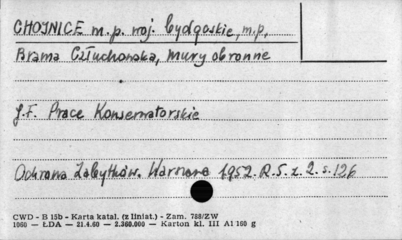 CHOJNICE m.p. woj. bydgoskie, m.p.
Brama Człuchowska, mury obronne
J.F. Prace Konserwatorskie
Ochrona Zabytków. Warszawa 1952. R.5. z. 2. s. 126
CWD - B 15b - Karta katal. (z liniat.) - Zam. 788/ZW
1060 — ŁDA — 21.4.60 — 2.360.000 — Karton kl. III A1 168 g